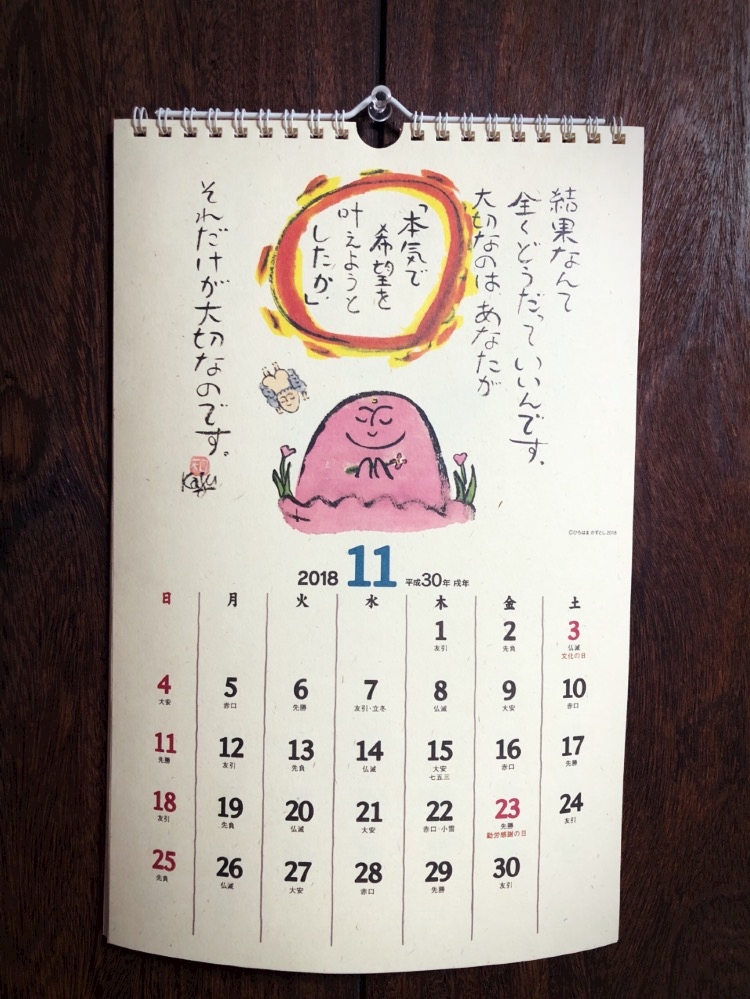 結果なんて
全くどうだっていいんです。
大切なのはあなたが
「本気で
希望を
叶えようと
したか」
それだけが大切なのです。
Kazu
©ひろはまかずとし 2018
2018 11 平成30年 戌年
日 月 火 水 木 金 土
1 2 3
友引 先負 仏滅
文化の日
4 5 6 7 8 9 10
大安 赤口 先勝 友引・立冬 仏滅 大安 赤口
11 12 13 14 15 16 17
先勝 友引 先負 仏滅 大安 赤口 先勝
七五三
18 19 20 21 22 23 24
友引 先負 仏滅 大安 赤口・小雪 先勝 友引
勤労感謝の日
25 26 27 28 29 30
先負 仏滅 大安 赤口 先勝 友引